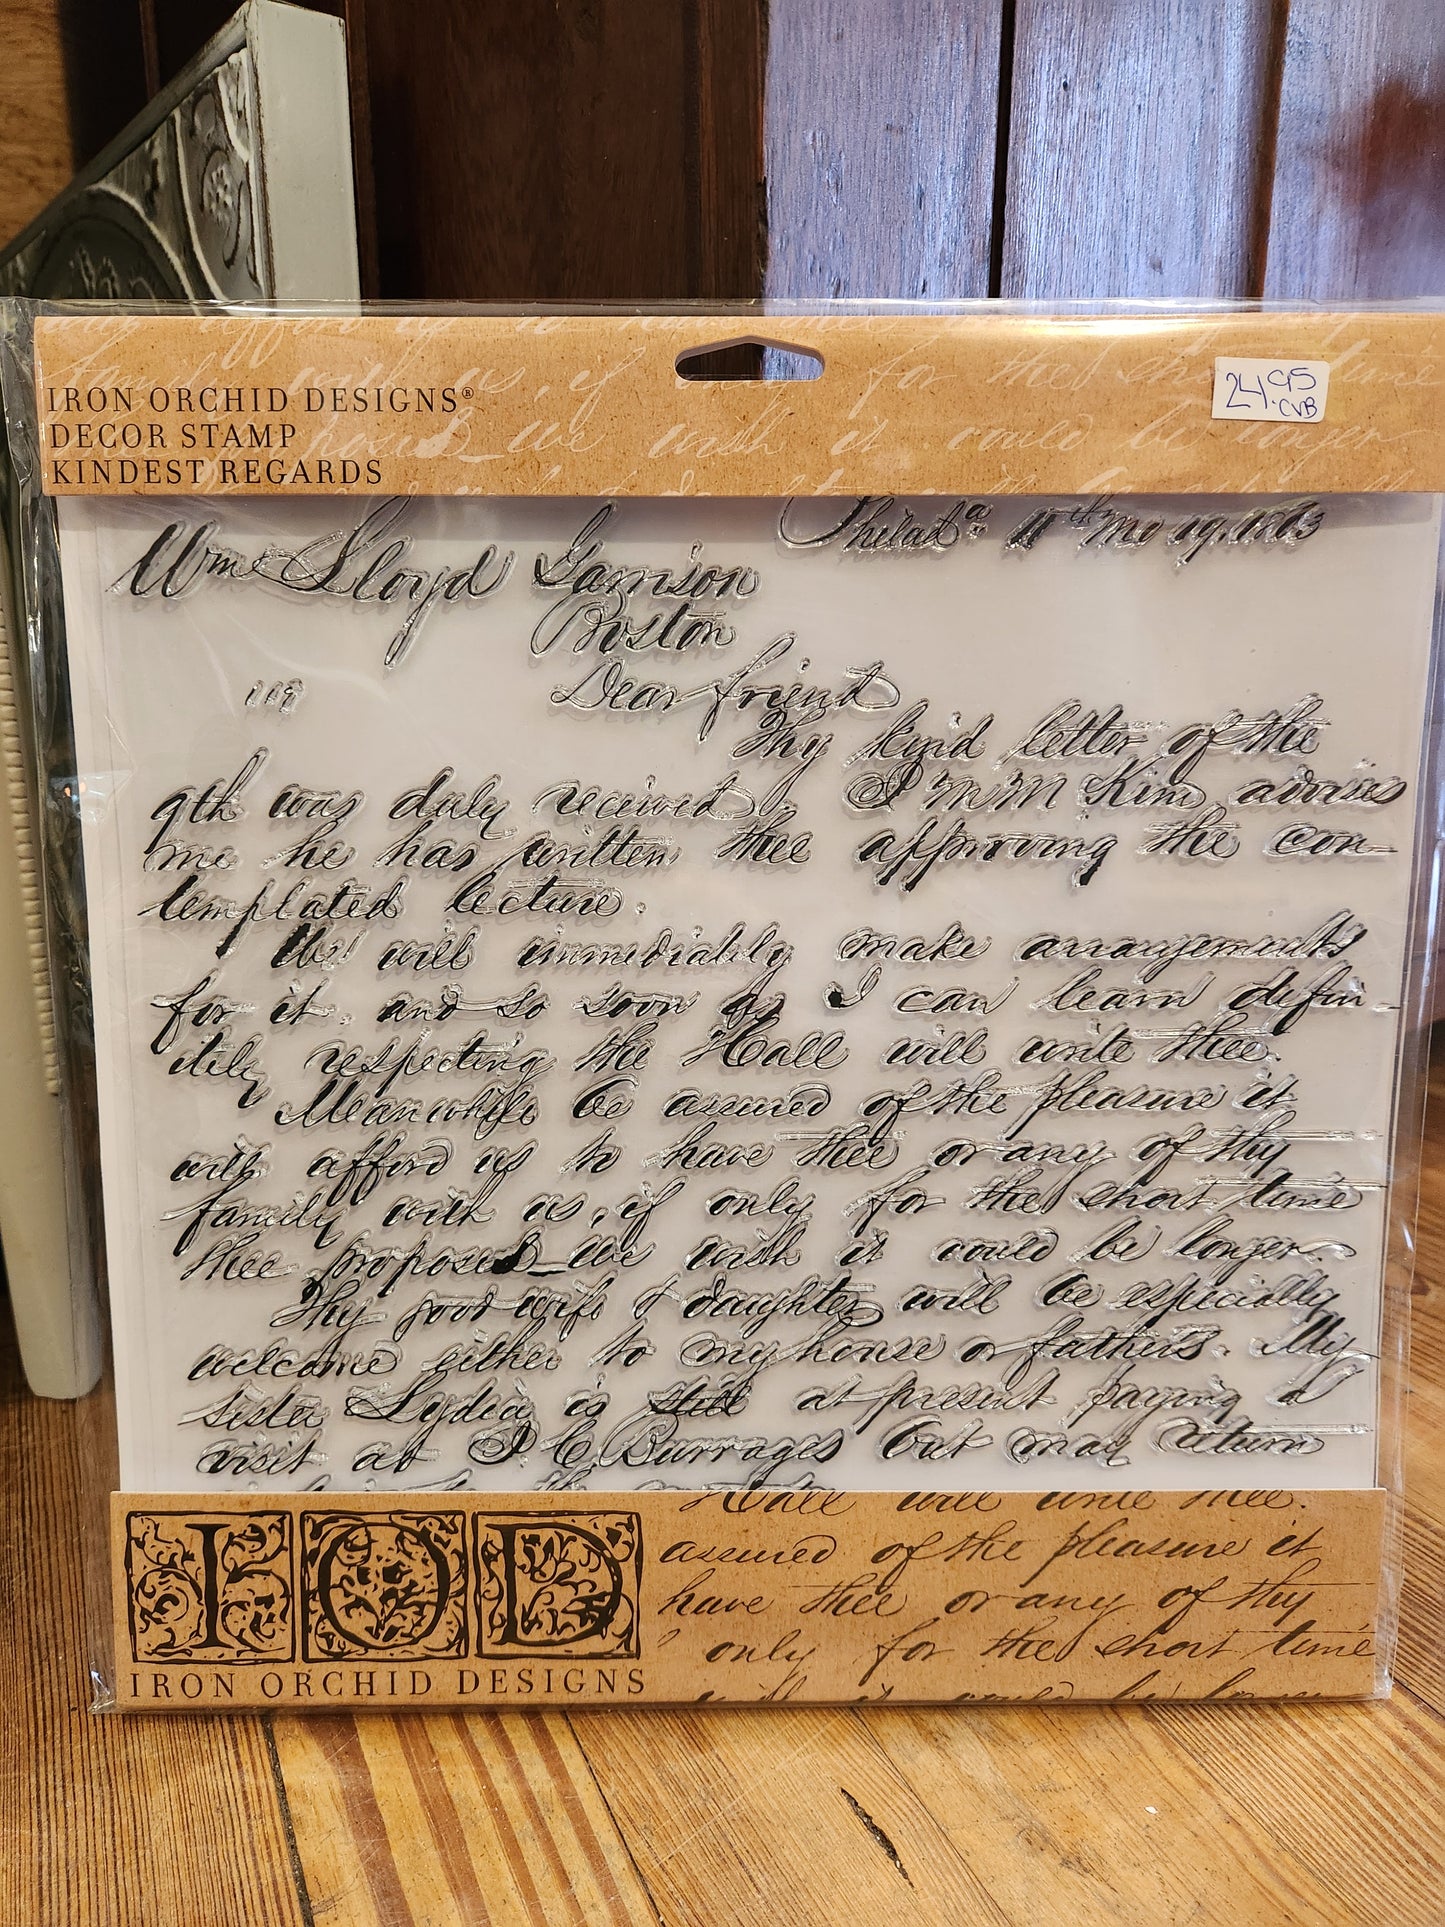 IRON ORCHID DESIGNS®
DECOR STAMP
KINDEST REGARDS
24.95
CVB
Philada 11th Mo 19. 1863
Wm Lloyd Garrison
Boston
Dear friend
Thy kind letter of the
9th was duly received. I M M Kim advises
me he has written thee approving the con-
templated lecture.
We will immediately make arrangements
for it. and so soon as I can learn defin-
itely respecting the Hall will write thee.
Meanwhile be assured of the pleasure it
will afford us to have thee or any of thy
family with us, if only for the short time
thee proposed_we wish it could be longer.
Thy good wife & daughter will be especially
welcome either to my house or fathers. My
sister Lydia is still at present paying a
visit at J C Burrages but may return
Hall will write thee.
assured of the pleasure it
have thee or any of thy
only for the short time
will it could be longer
IOD
IRON ORCHID DESIGNS